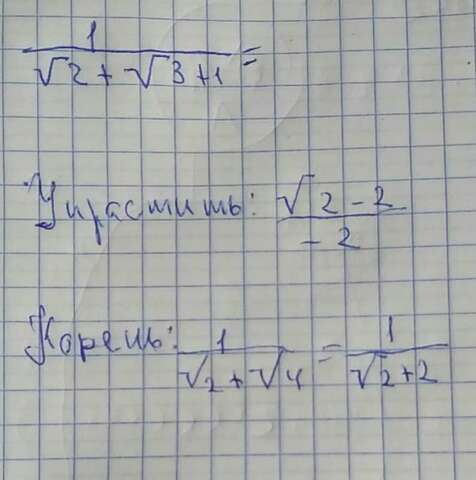 1/(√2 + √3+1) =
Упрастить: (√2 - 2)/(- 2)
Корень: 1/(√2 + √4) = 1/(√2+2)